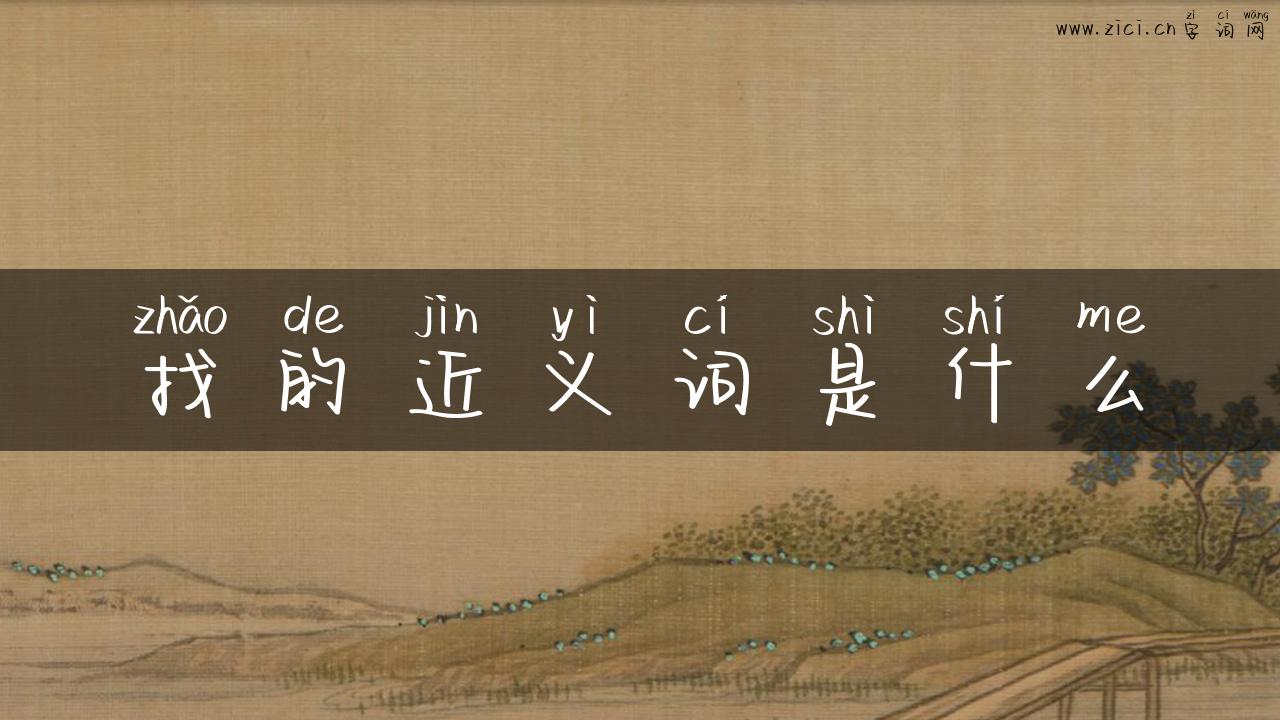 zì cí wǎng
www.zici.cn字词网
zhǎo de jìn yì cí shì shí me
找的近义词是什么